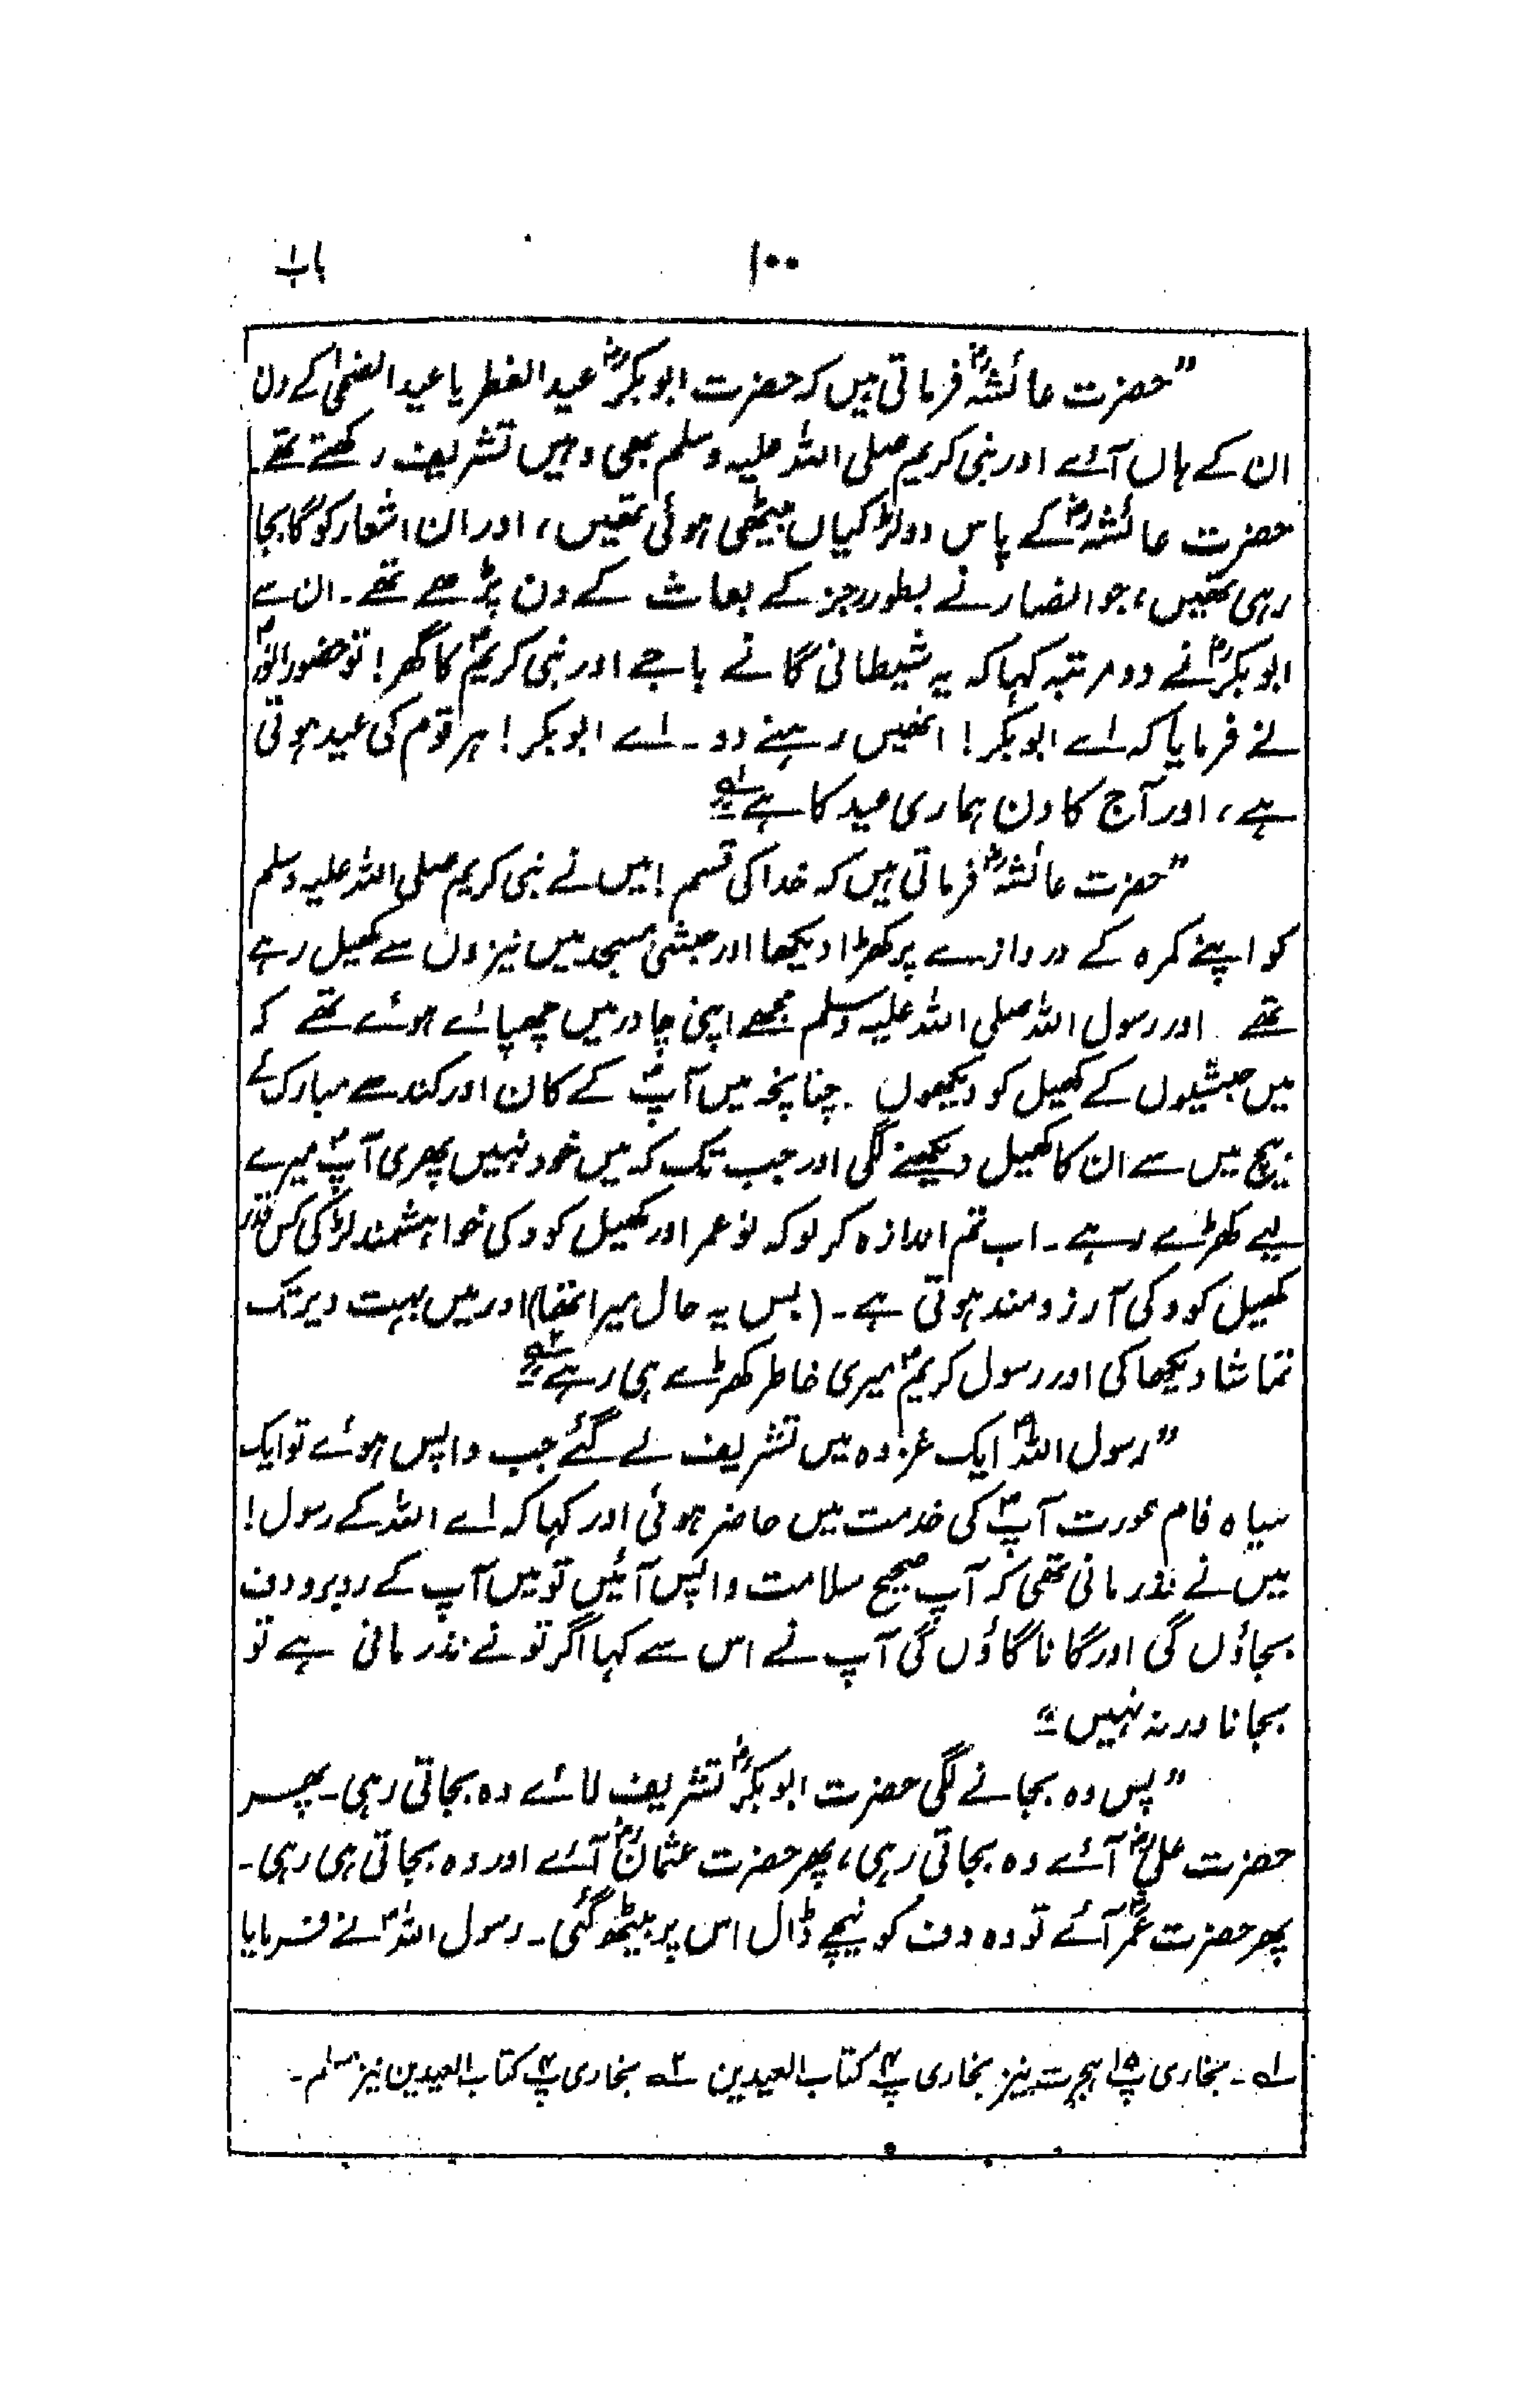 باب ۱
۱۰۰
”حضرت عائشہؓ فرماتی ہیں کہ حضرت ابوبکرؓ عید الفطر یا عید الضحیٰ کے دن
ان کے ہاں آئے اور نبی کریم صلی اللہ علیہ وسلم بھی وہیں تشریف رکھتے تھے۔
حضرت عائشہؓ کے پاس دو لڑکیاں بیٹھی ہوئی تھیں، اور ان اشعار کو گا بجا
رہی تھیں، جو انصار نے بطور رجز کے بعاث کے دن پڑھے تھے۔ ان سے
ابوبکرؓ نے دو مرتبہ کہا کہ یہ شیطانی گانے باجے اور نبی کریمؐ کا گھر! تو حضور انورؐ
نے فرمایا کہ اے ابوبکر! انھیں رہنے دو۔ اے ابوبکر! ہر قوم کی عید ہوتی
ہے، اور آج کا دن ہماری عید کا ہے“ ۱؎
”حضرت عائشہؓ فرماتی ہیں کہ خدا کی قسم! میں نے نبی کریم صلی اللہ علیہ وسلم
کو اپنے کمرہ کے دروازے پر کھڑا دیکھا اور حبشی مسجد میں نیزوں سے کھیل رہے
تھے اور رسول اللہ صلی اللہ علیہ وسلم مجھے اپنی چادر میں چھپائے ہوئے تھے کہ
میں حبشیوں کے کھیل کو دیکھوں۔ چنانچہ میں آپؐ کے کان اور کندھے مبارک کے
بیچ میں سے ان کا کھیل دیکھنے لگی اور جب تک کہ میں خود نہیں پھری آپؐ میرے
لیے کھڑے رہے۔ اب تم اندازہ کر لو کہ نو عمر اور کھیل کود کی خواہشمند لڑکی کس قدر
کھیل کود کی آرزو مند ہوتی ہے۔ (بس یہ حال میرا تھا) اور میں بہت دیر تک
تماشا دیکھا کی اور رسول کریمؐ میری خاطر کھڑے ہی رہے“ ۲؎
”رسول اللہؐ ایک غزوہ میں تشریف لے گئے جب واپس ہوئے تو ایک
سیاہ فام عورت آپؐ کی خدمت میں حاضر ہوئی اور کہا کہ اے اللہ کے رسول!
میں نے نذر مانی تھی کہ آپ صحیح سلامت واپس آئیں تو میں آپ کے روبرو دف
بجاؤں گی اور گانا گاؤں گی آپ نے اس سے کہا اگر تو نے نذر مانی ہے تو
بجانا ورنہ نہیں“
”پس وہ بجانے لگی حضرت ابوبکرؓ تشریف لائے وہ بجاتی رہی۔ پھر
حضرت علیؓ آئے وہ بجاتی رہی، پھر حضرت عثمانؓ آئے اور وہ بجاتی ہی رہی۔
پھر حضرت عمرؓ آئے تو وہ دف کو نیچے ڈال اس پر بیٹھ گئی۔ رسول اللہؐ نے فرمایا
۱؎۔ بخاری پ ۱۵ ہجرت نیز بخاری پ ۴ کتاب العیدین ۲؎ بخاری پ ۴ کتاب العیدین نیز مسلم۔